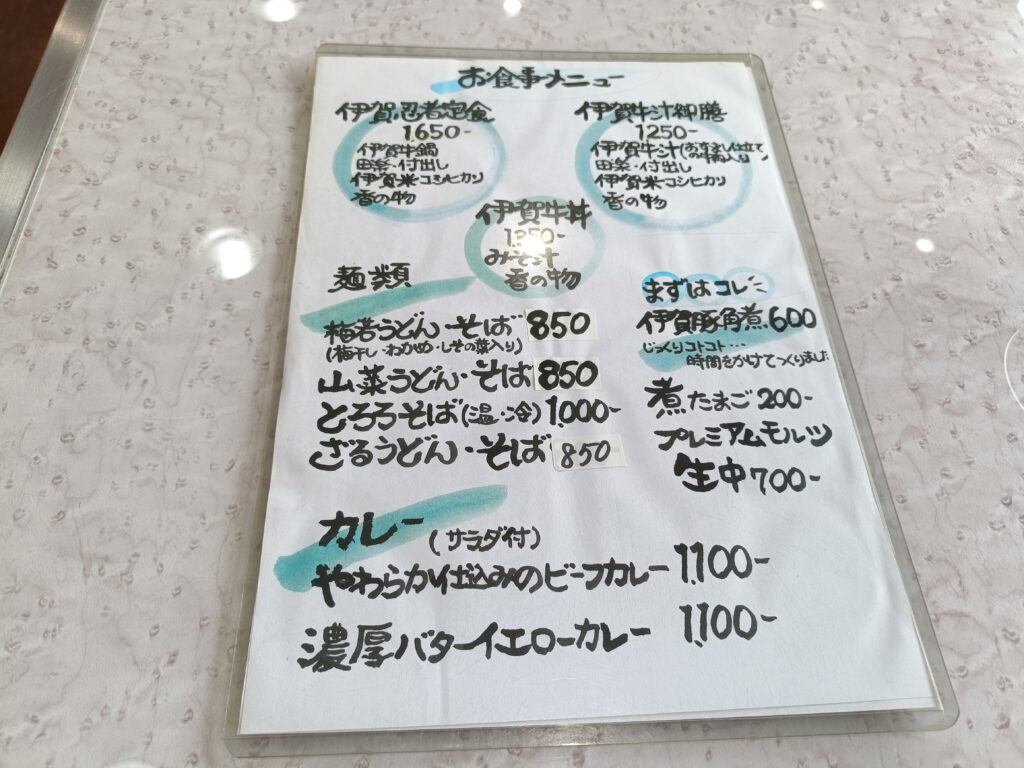 お食事メニュー
伊賀忍者定食
1650-
伊賀牛鍋
田楽・付出し
伊賀米コシヒカリ
香の物
伊賀牛汁御膳
1250-
伊賀牛汁(お吸まし仕立ての牛肉入り)
田楽・付出し
伊賀米コシヒカリ
香の物
伊賀牛丼
みそ汁
香の物
麺類
梅若うどん・そば 850
(梅干し・わかめ・しその葉入り)
山菜うどん・そば 850
とろろそば(温・冷) 1.000-
ざるうどん・そば 850
まずはコレ
伊賀豚角煮 600
じっくりコトコト…
時間をかけてつくりました
煮たまご 200-
プレミアムモルツ
生中 700-
カレー (サラダ付)
やわらか仕込みのビーフカレー 1.100-
濃厚バターイエローカレー 1.100-